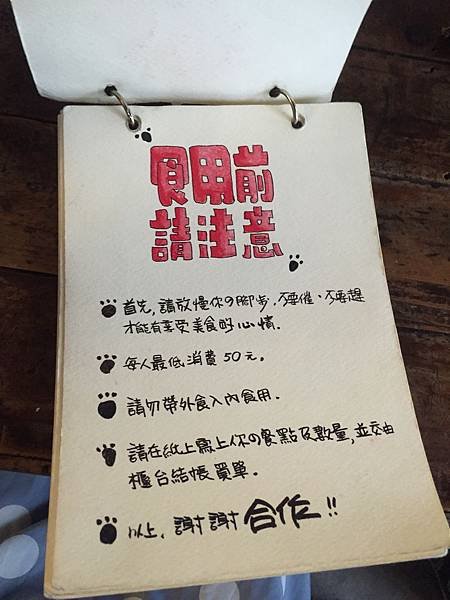 食用前
請注意
首先,請放慢你の腳步.不要催、不要趕
才能有享受美食的心情.
每人最低消費50元。
請勿帶外食入內食用.
請在紙上寫上你の餐點及數量,並交由
櫃台結帳買單.
以上,謝謝合作!!